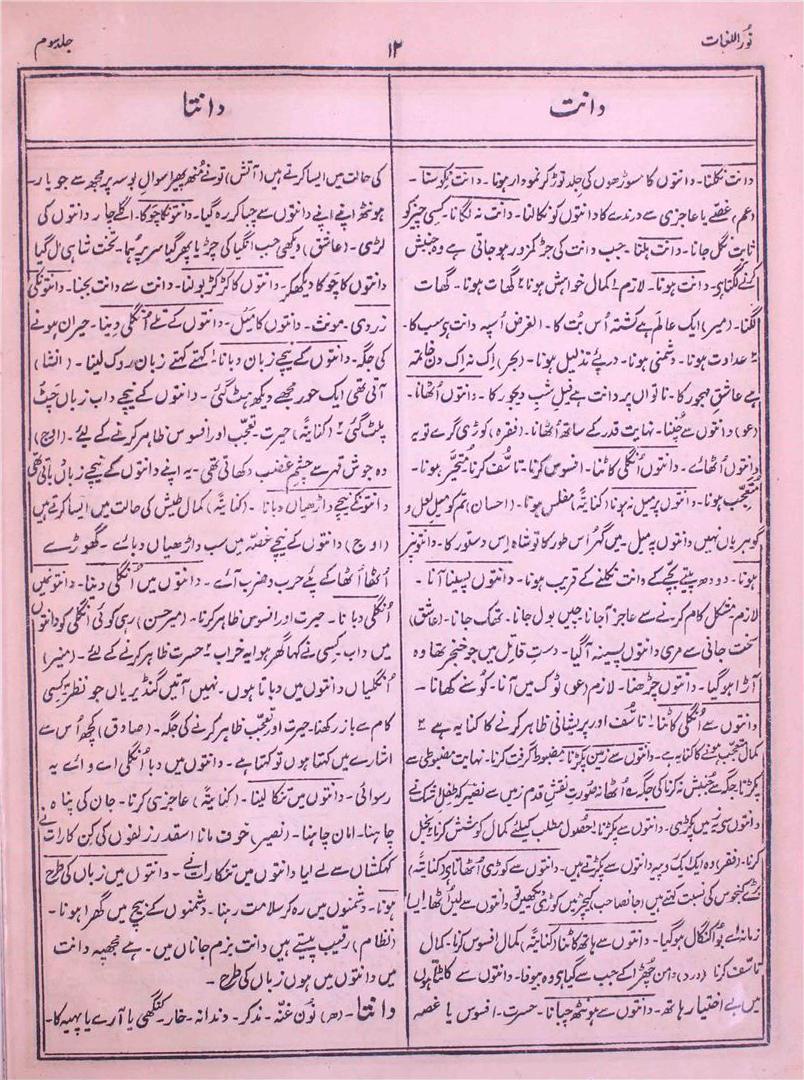 نُور اللغات
۱۲
جلد سوم
دانت
دانتا
دانت نکلنا۔ دانتوں کا مسوڑھوں کی جلد توڑ کر نمودار ہونا۔ دانت نکوسنا۔
(عم) غصّے یا عاجزی سے درندے کا دانتوں کو نکالنا۔ دانت نہ لگانا۔ کسی چیز کو
ثابت نگل جانا۔ دانت ہلنا۔ جب دانت کی جڑ کمزور ہو جاتی ہے وہ جنبش
کرنے لگتا ہے۔ دانت ہونا۔ لازم ۱ کمال خواہش ہونا ۲ گھات ہونا۔ گھات
لگنا۔ (میر) ایک عالم ہے کشتہ اُس بُت کا۔ الغرض اُسپہ دانت ہے سب کا۔
۳ عداوت ہونا۔ دشمنی ہونا۔ درپئے تذلیل ہونا۔ (بحر) اِک نہ اِک دن خاتمہ
ہے عاشقِ مہجور کا۔ ناتواں پر دانت ہے فیلِ شبِ دیجور کا۔ دانتوں اُٹھانا۔
(عو) دانتوں سے چُننا۔ نہایت قدر کے ساتھ اُٹھانا۔ (فقرہ) کوڑی گرے تو یہ
دانتوں اُٹھائے۔ دانتوں اُنگلی کاٹنا۔ افسوس کرنا۔ تاسّف کرنا۔ متحیّر ہونا۔
متعجب ہونا۔ دانتوں پر میل نہ ہونا (کنایۃً) مفلس ہونا۔ (احسان) تم کو میل لعل و
گوہر یاں نہیں دانتوں پہ میل۔ میں گہر اُس طور کا تو شاہ اِس دستور کا۔ دانتوں پر
ہونا۔ دودھ پیتے بچّے کے دانت نکلنے کے قریب ہونا۔ دانتوں پسینا آنا۔
لازم مشکل کام کرنے سے عاجز آ جانا چیں بول جانا۔ تھک جانا۔ (عاشق)
سخت جانی سے مری دانتوں پسینہ آگیا۔ دستِ قاتل میں جو خنجر تھا وہ
آڑا ہو گیا۔ دانتوں چڑھنا۔ لازم (عو) ٹوک میں آنا۔ کوسنے کھانا۔
دانتوں سے اُنگلی کاٹنا۔ ۱ تاسُّف اور پریشانی ظاہر کرنے کا کنایہ ہے ۲
کمال تعجب ہونے کا کنایہ ہے۔ دانتوں سے زمین پکڑنا۔ مضبوط گرفت کرنا۔ نہایت مضبوطی سے
پکڑنا جگہ سے جنبش نہ کرنا کی جگہ ؎ اُٹھا نہ صورت نقش قدم زمیں سے نصیر کہ طفل اشک نے
دانتوں سی نہ میں پکڑی۔ دانتوں سے پکڑنا۔ حصول مطلب کیلئے کمال کوشش کرنا ۲ بخل
کرنا۔ (فقرہ) وہ ایک ایک پیسہ دانتوں سے پکڑتے ہیں۔ دانتوں سے کوڑی اُٹھانا (کنایۃً)
بڑے کنجوس کی نسبت کہتے ہیں (جانصاحب) کیچڑ میں کوڑی دیکھیں تو دانتوں سے لیں اُٹھا۔ ایسا
زمانہ اے بوا کنگال ہو گیا۔ دانتوں سے ہاتھ کاٹنا (کنایۃً) کمال افسوس کرنا۔ کمال
تاسّف کرنا (درد) دامن چھڑا کے جب سے گیا ہے وہ بیوفا۔ دانتوں سے کاٹتا ہوں
میں بے اختیار ہاتھ۔ دانتوں سے ہونٹھ چبانا۔ حسرت۔ افسوس یا غصہ
کی حالت میں ایسا کرتے ہیں (آتش) تو نے مُنھ پھیرا سوالِ بوسہ پر مجھ سے جو یار۔
ہونٹھ اپنے اپنے دانتوں سے چبا کر رہ گیا۔ دانتونکا چوکا۔ اگلے چار دانتوں کی
لڑی۔ (عاشق) دیکھی جب انگیا کی چڑیا پھر گیا سر پر ہما۔ تخت شاہی مل گیا
دانتوں کا چوکا دیکھکر۔ دانتوں کا کڑکڑ بولنا۔ دانت سے دانت بجنا۔ دانتونکی
زردی۔ مونث۔ دانتوں کا میل۔ دانتوں کے تلے اُنگلی دینا۔ حیران ہونے
کی جگہ۔ دانتوں کے نیچے زبان دبانا ۱ کہتے کہتے زبان روک لینا۔ (انشا)
آئی تھی ایک حور مجھے دیکھ ہٹ گئی۔ دانتوں کے نیچے داب زباں جھٹ
پلٹ گئی ۲ (کنایۃً) حیرت۔ تعجّب اور افسوس ظاہر کرنے کے لیئے۔ (اوج)
وہ جوش قہر سے چشمِ غضب دکھاتی تھی۔ یہ اپنے دانتوں کے نیچے زباں پاتی تھی
دانتونکے نیچے داڑھیاں دبانا۔ (کنایۃً) کمال طیش کی حالت میں ایسا کرتے ہیں
(اوج) دانتوں کے نیچے غصّہ میں سب داڑھیاں دبائے۔ گھوڑے
اُٹھا اُٹھا کے پئے حرب و ضرب آئے۔ دانتوں میں اُنگلی دینا۔ دانتونمیں
اُنگلی دبانا۔ حیرت اور افسوس ظاہر کرنا۔ (میر حسن) رہی کوئی اُنگلی کو دانتوں
میں داب کسی نے کہا گھر ہوا یہ خراب ۲ حسرت ظاہر کرنے کے لئے۔ (منیر)
اُنگلیاں دانتوں میں دباتا ہوں۔ نہیں آتیں گنڈیریاں جو نظر ۳ کسی
کام سے باز رکھنا۔ حیرت اور تعجّب ظاہر کرنے کی جگہ۔ (صادق) کچھ اُس سے
اشارے میں کہتا ہوں تو کہتا ہے۔ دانتوں میں دبا اُنگلی اے وائے یہ
رسوائی۔ دانتوں میں تنکا لینا۔ (کنایۃً) عاجزی کرنا۔ جان کی پناہ
چاہنا۔ امان چاہنا۔ (نصیر) خوف مانا اسقدر زلفوں کی کن کا رات نے
کہکشاں سے لے لیا دانتوں میں تنکا رات نے۔ دانتوں میں زباں کی طرح
ہونا۔ دشمنوں میں رہ کر سلامت رہنا۔ دشمنوں کے بیچ میں گھرا ہونا۔
(نظام) رقیب پیستے ہیں دانت بزم جاناں میں۔ ہے مجھپہ دانت
میں دانتوں میں ہوں زباں کی طرح۔
دانتا۔ (ھ) نون غنّہ۔ مذکر۔ دندانہ۔ خار۔ کنگھی یا آرے یا پہیہ کا۔